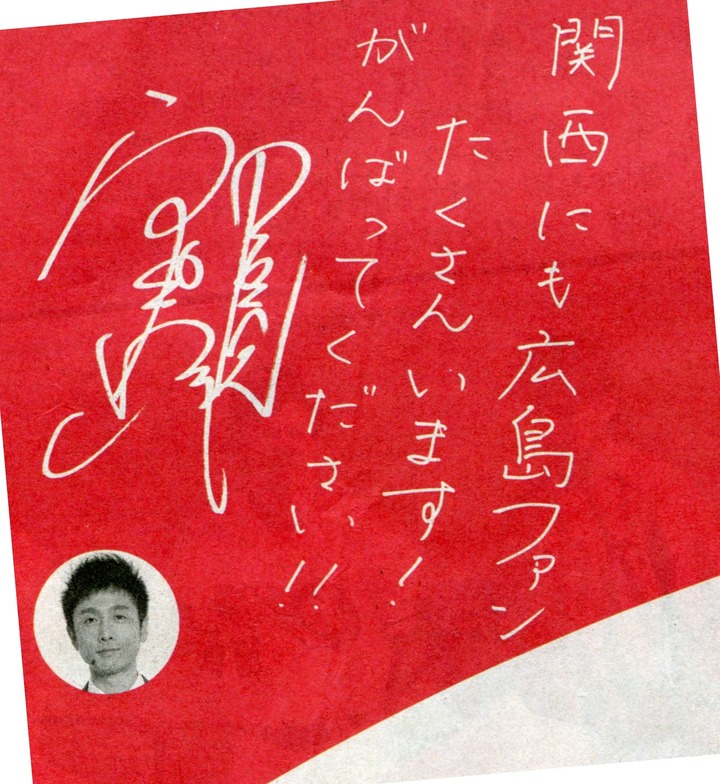 関西にも広島ファン
たくさんいます!
がんばってください!!